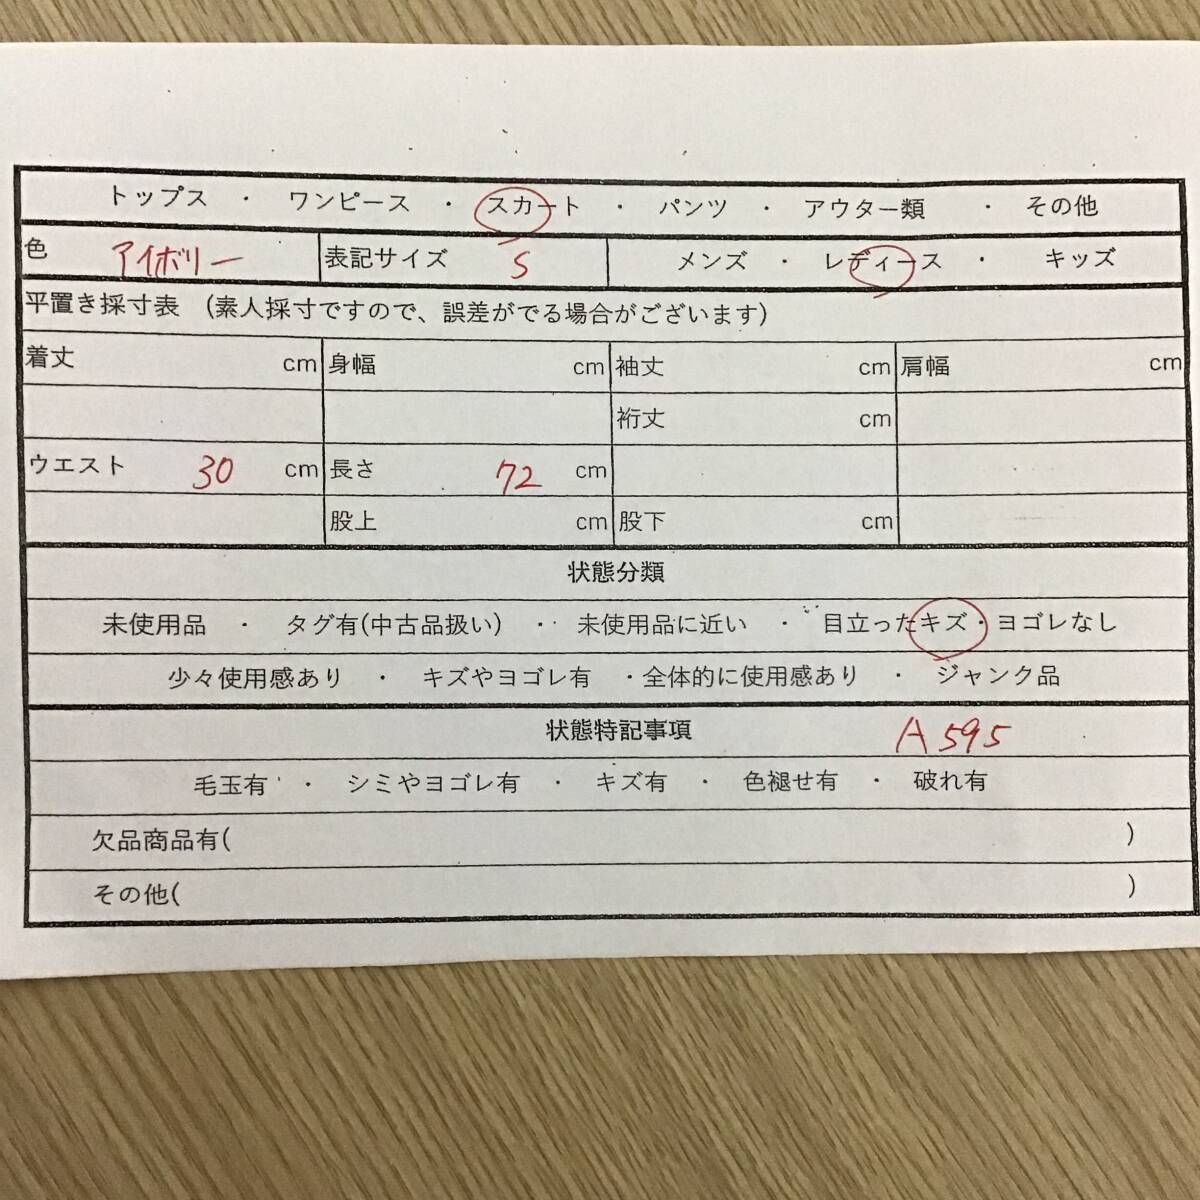 トップス ・ ワンピース ・ スカート ・ パンツ ・ アウター類 ・ その他
色 アイボリー 表記サイズ S メンズ ・ レディース ・ キッズ
平置き採寸表 (素人採寸ですので、誤差がでる場合がございます)
着丈 cm 身幅 cm 袖丈 cm 肩幅 cm
裄丈 cm
ウエスト 30 cm 長さ 72 cm
股上 cm 股下 cm
状態分類
未使用品 ・ タグ有(中古品扱い) ・・ 未使用品に近い ・ 目立ったキズ・ヨゴレなし
少々使用感あり ・ キズやヨゴレ有 ・全体的に使用感あり ・ ジャンク品
状態特記事項 A595
毛玉有 ・ シミやヨゴレ有 ・ キズ有 ・ 色褪せ有 ・ 破れ有
欠品商品有( )
その他( )